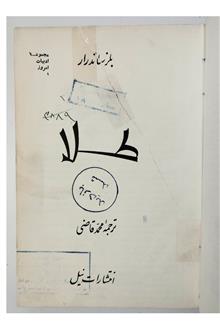 مجموعهٔ
ادبیات
امروز
۱
بلز ساندرار
۳۷۸۹
طلا
ترجمهٔ محمد قاضی
انتشارات نیل